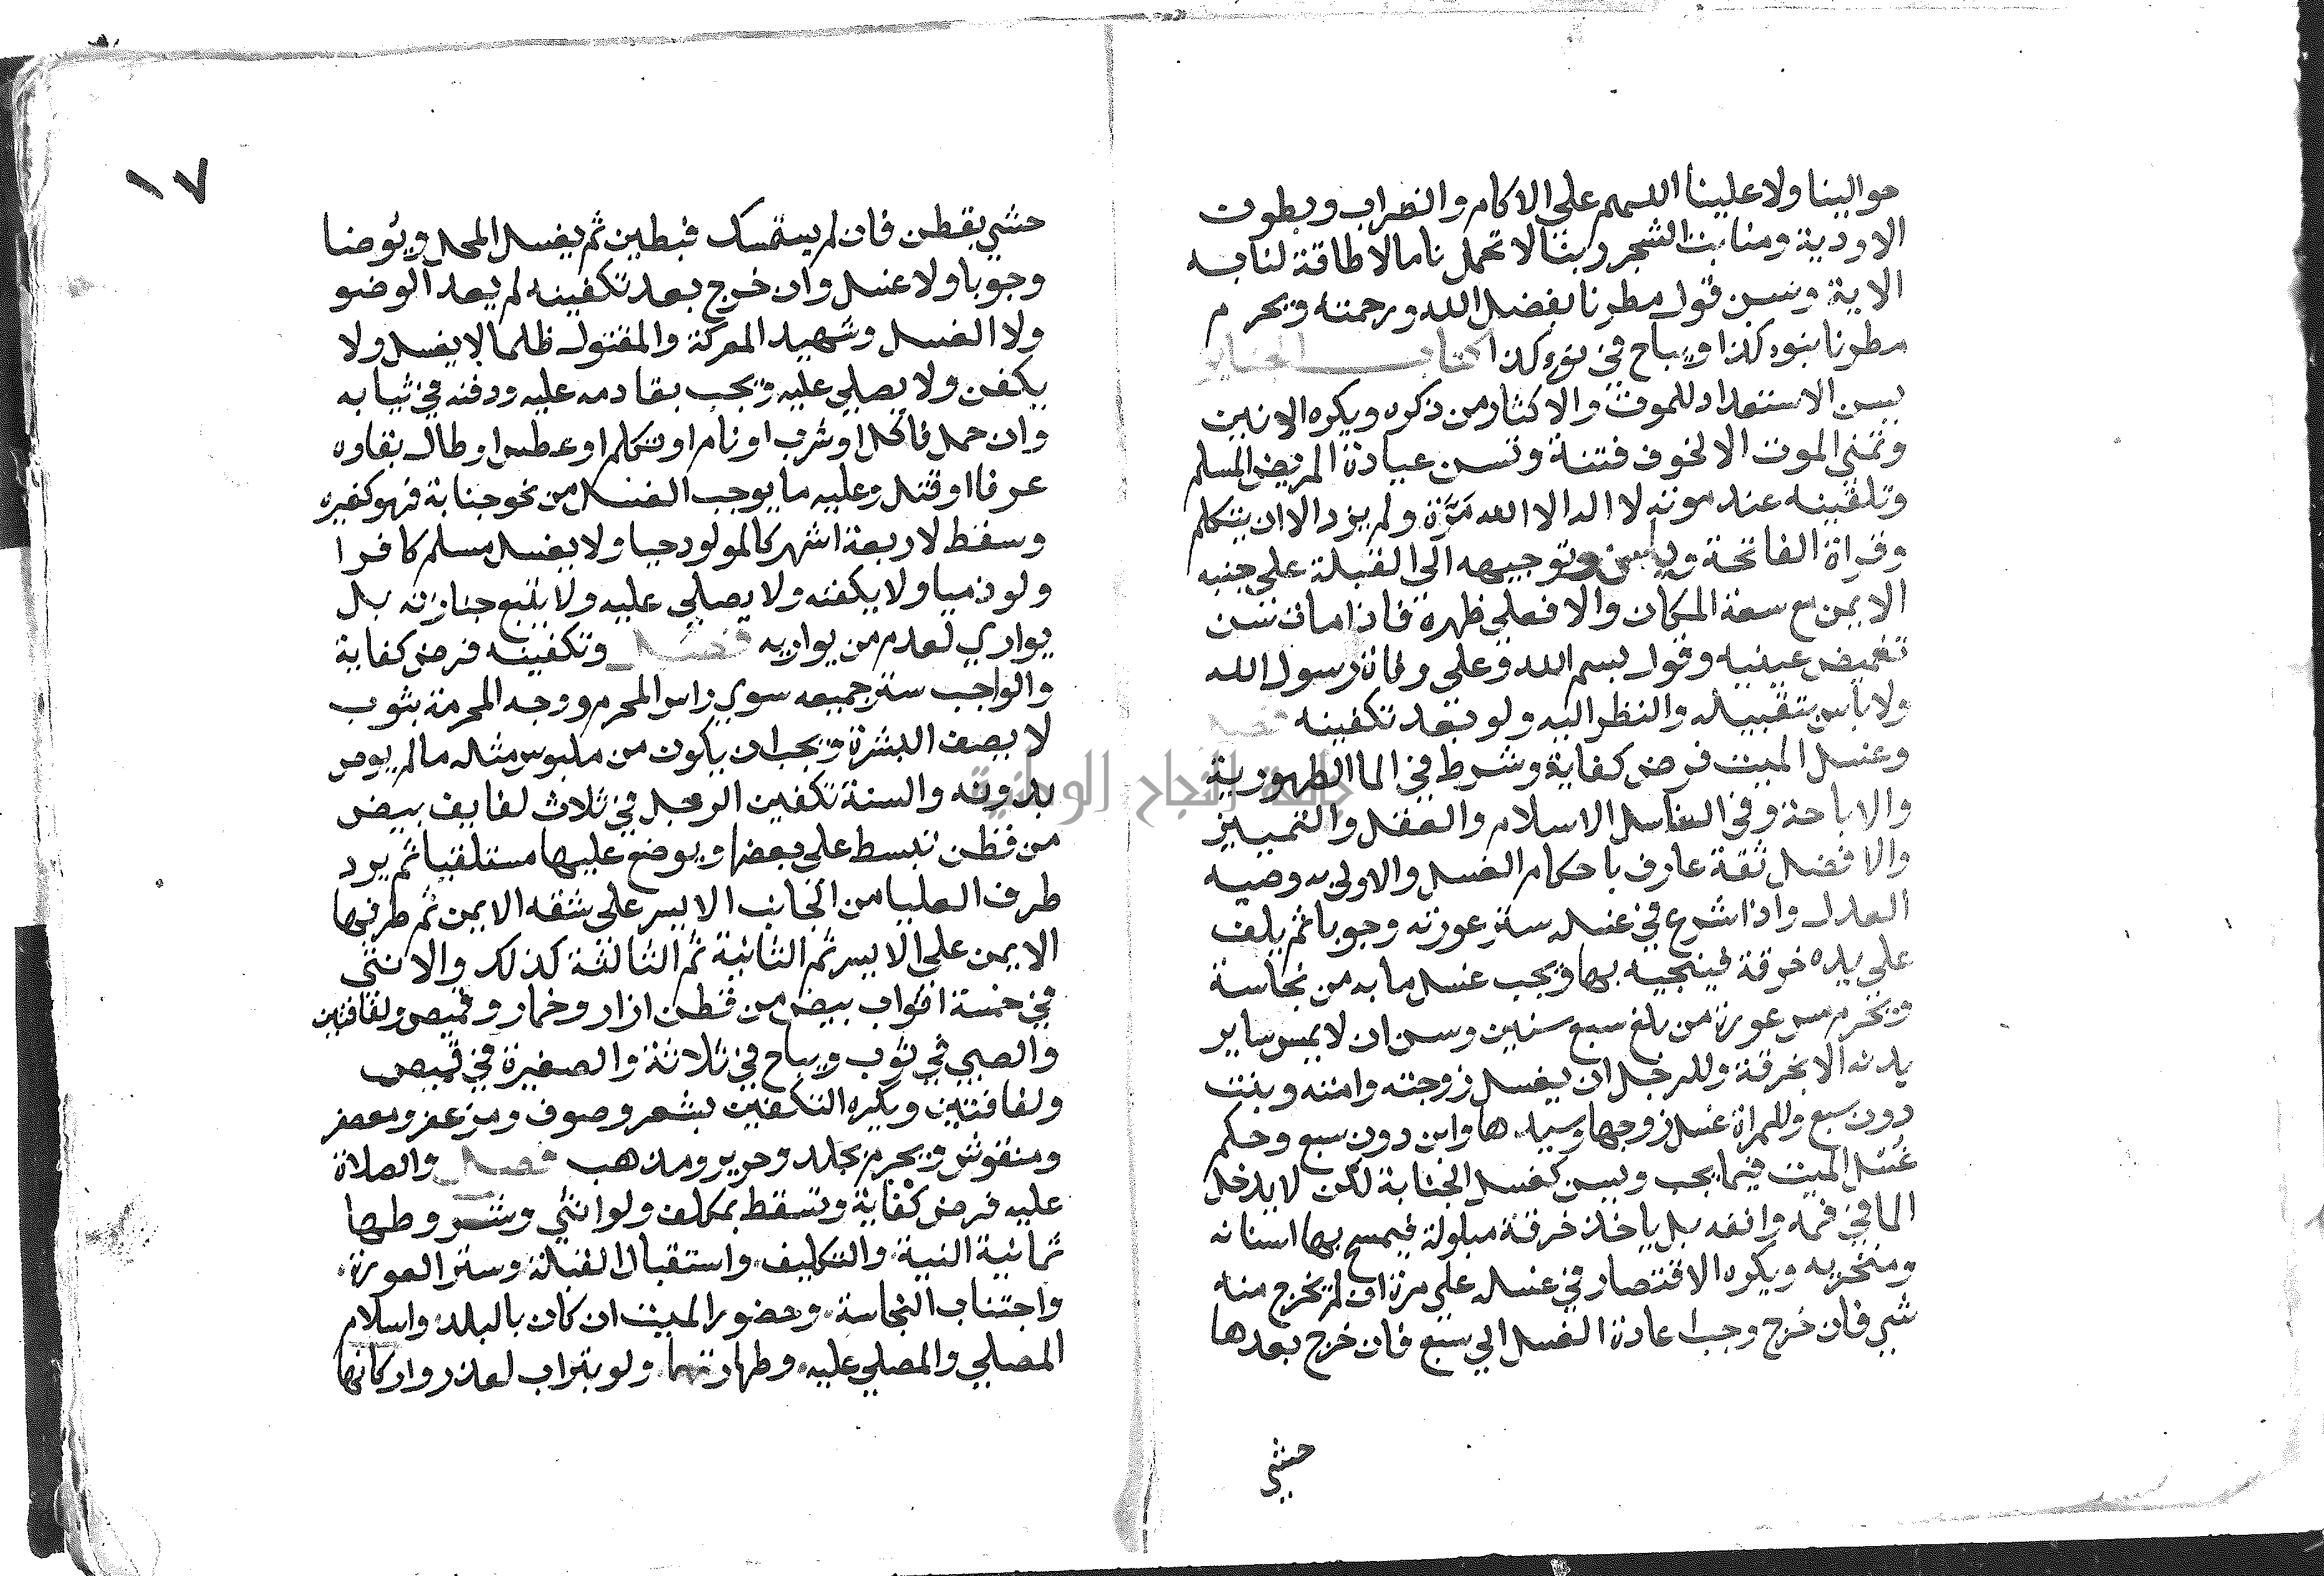 حوالينا ولا علينا اللهم على الاكام والضراب وبطون
الاودية ومنابت الشجر ربنا لا تحملنا ما لا طاقة لنا به
الاية وسن قول مطرنا بفضل الله ورحمته ويحرم
مطرنا بنوء كذا ويباح في نوء كذا كتاب الجنايز
يسن الاستعداد للموت والاكثار من ذكره ويكره الانين
وتمني الموت الا لخوف فتنة وتسن عيادة المريض المسلم
وتلقينه عند موته لا اله الا الله مَرَّة ولم يزد الا ان يتكلم
وقراة الفاتحة ويس وتوجيهه الى القبلة على جنبه
الايمن مع سعة المكان والا فعلى ظهره فاذا مات سن
تغميض عينيه وقول بسم الله وعلى وفاة رسول الله
ولا باس بتقبيله والنظر اليه ولو بعد تكفينه فصل
وغسل الميت فرض كفاية وشرط في الما الطهورية
والاباحة وفي الغاسل الاسلام والعقل والتمييز
والافضل ثقة عارف باحكام الغسل والاولى به وصيه
العدل واذا شرع في غسله ستر عورته وجوبا ثم يلف
على يده خرقة فينجيه بها ويجب غسل ما به من نجاسة
ويحرم مس عورة من بلغ سبع سنين وسن ان لا يمس ساير
بدنه الا بخرقة وللرجل ان يغسل زوجته وامته وبنت
دون سبع وللمراة غسل زوجها وسيدها وابن دون سبع وحكم
غُسل الميت فيما يجب ويسن كغسل الجنابة لكن لا يدخل
الما في فمه وانفه بل ياخذ خرقة مبلولة فيمسح بها اسنانه
ومنخريه ويكره الاقتصار في غسله على مرة ان لم يخرج منه
شي فان خرج وجب اعادة الغسل الي سبع فان خرج بعدها
حشي
١٧
حشي بقطن فان لم يستمسك فبطين ثم يغسل المحل ويوضا
وجوبا ولا غسل وان خرج بعد تكفينه لم يعد الوضو
ولا الغسل وشهيد المعركة والمقتول ظلما لا يغسل ولا
يكفن ولا يصلي عليه ويجب بقا دمه عليه ودفنه في ثيابه
وان حمل فاكل او شرب او نام او تكلم او عطس او طال بقاوه
عرفا او قتل وعليه ما يوجب الغسل من نحو جنابة فهو كغيره
وسقط لاربعة اشهر كالمولود حيا ولا يغسل مسلم كافرا
ولو ذميا ولا يكفنه ولا يصلي عليه ولا يتبع جنازته بل
يواري لعدم من يواريه فصل وتكفينه فرض كفاية
والواجب ستر جميعه سوي راس المحرم ووجه المحرمة بثوب
لا يصف البشرة ويجب ان يكون من ملبوس مثله ما لم يوص
بدونه والسنة تكفين الرجل في ثلاث لفايف بيض
من قطن تبسط على بعضها ويوضع عليها مستلقيا ثم يرد
طرف العليا من الجانب الايسر على شقه الايمن ثم طرفها
الايمن على الايسر ثم الثانية ثم الثالثة كذلك والانثى
في خمسة اثواب بيض من قطن ازار وخمار وقميص ولفافتين
والصبي في ثوب ويباح في ثلاثة والصغيرة في قميص
ولفافتين ويكره التكفين بشعر وصوف ومزعفر ومعصفر
ومنقوش ويحرم بجلد وحرير ومذهب فصل والصلاة
عليه فرض كفاية وتسقط بمكلف ولو انثي وشروطها
ثمانية النية والتكليف واستقبال القبلة وستر العورة
واجتناب النجاسة وحضور الميت ان كان بالبلد واسلام
المصلي والمصلي عليه وطهارتهما ولو بتراب لعذر واركانها
جامعة النجاح الوطنية